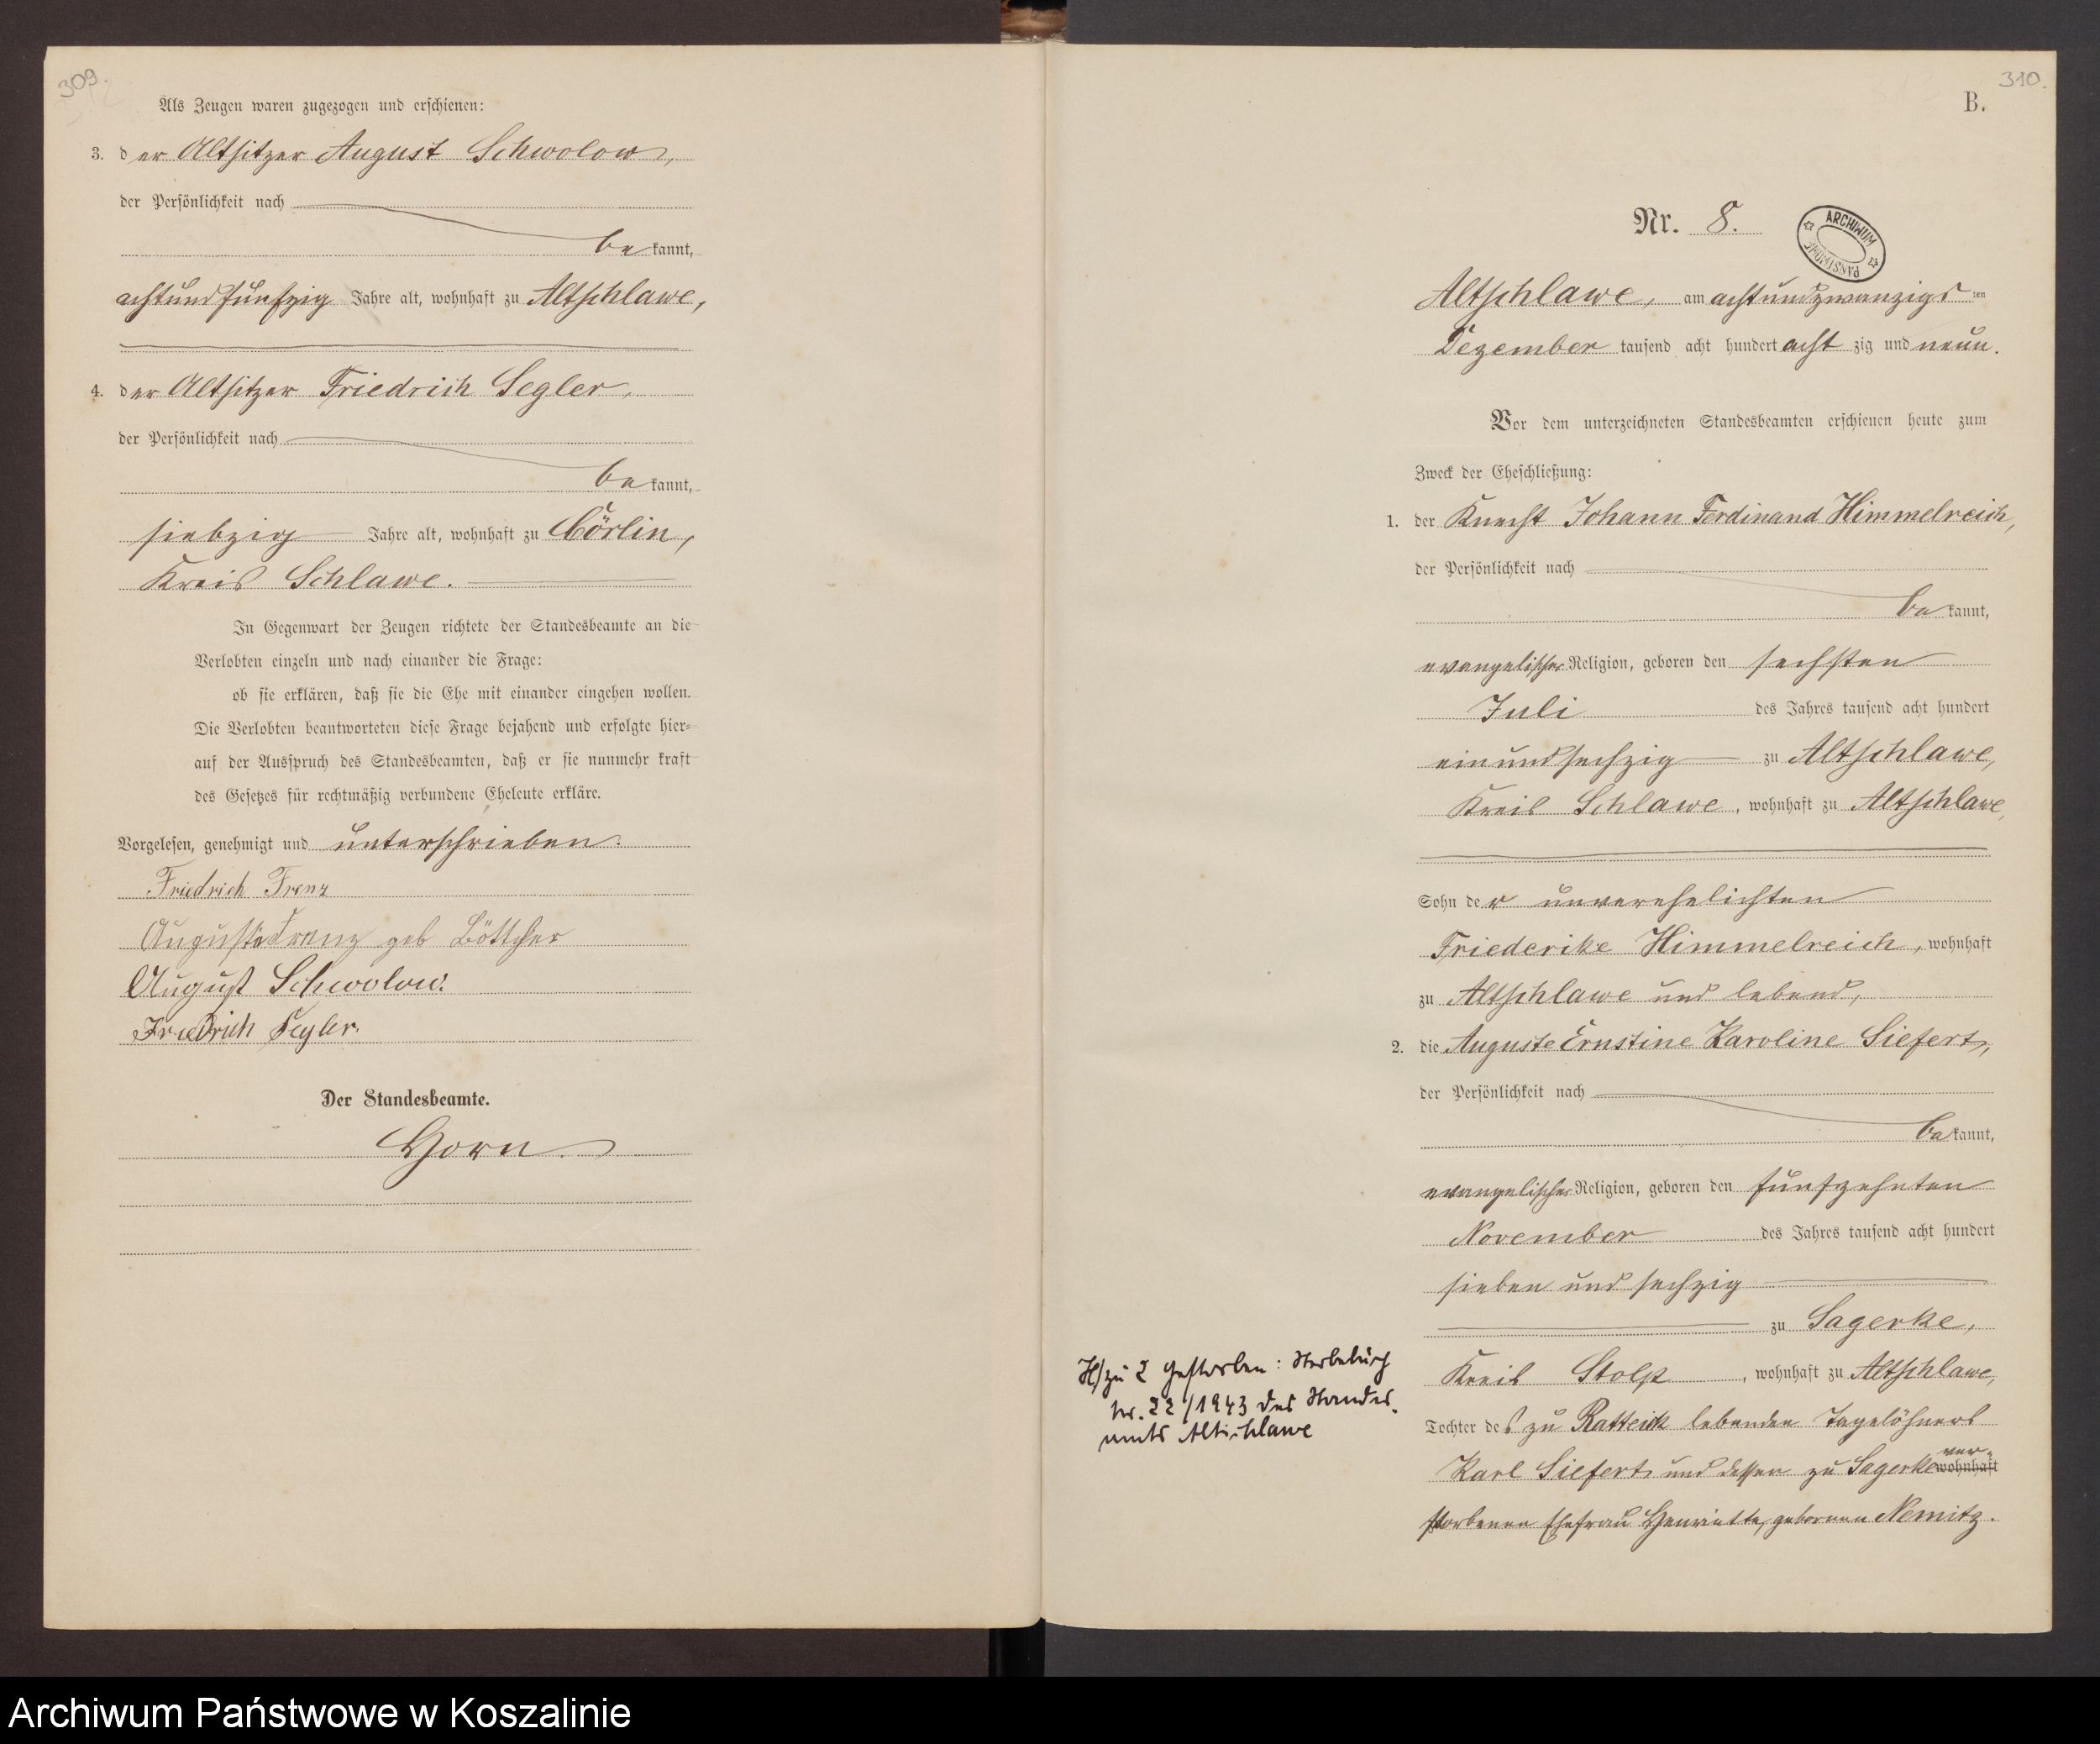 309.
Als Zeugen waren zugezogen und erschienen:
3. der Altsitzer August Schwolow,
der Persönlichkeit nach
bekannt,
achtundfünfzig Jahre alt, wohnhaft zu Altschlawe,
4. der Altsitzer Friedrich Segler,
der Persönlichkeit nach
bekannt,
siebzig Jahre alt, wohnhaft zu Cörlin,
Kreis Schlawe.
In Gegenwart der Zeugen richtete der Standesbeamte an die
Verlobten einzeln und nach einander die Frage:
ob sie erklären, daß sie die Ehe mit einander eingehen wollen.
Die Verlobten beantworteten diese Frage bejahend und erfolgte hier-
auf der Ausspruch des Standesbeamten, daß er sie nunmehr kraft
des Gesetzes für rechtmäßig verbundene Eheleute erkläre.
Vorgelesen, genehmigt und unterschrieben.
Friedrich Frenz
Auguste Frenz geb Böttcher
August Schwolow.
Friedrich Segler.
Der Standesbeamte.
Horn
310.
B.
Nr. 8.
ARCHIWUM
PAŃSTWOWE
Altschlawe, am achtundzwanzigsten
Dezember tausend acht hundert achtzig und neun.
Vor dem unterzeichneten Standesbeamten erschienen heute zum
Zweck der Eheschließung:
1. der Knecht Johann Ferdinand Himmelreich,
der Persönlichkeit nach
bekannt,
evangelischer Religion, geboren den sechsten
Juli des Jahres tausend acht hundert
einundsechzig zu Altschlawe,
Kreis Schlawe, wohnhaft zu Altschlawe,
Sohn der unverehelichten
Friederike Himmelreich, wohnhaft
zu Altschlawe und lebend,
2. die Auguste Ernstine Karoline Siefert,
der Persönlichkeit nach
bekannt,
evangelischer Religion, geboren den fünfzehnten
November des Jahres tausend acht hundert
sieben und sechzig
zu Sagerke,
Kreis Stolp, wohnhaft zu Altschlawe,
Tochter des zu Ratteick lebenden Tagelöhners
Karl Siefert und dessen zu Sagerke wohnhaft ver-
storbenen Ehefrau Henriette, gebornen Nemitz.
H/zu 2 gestorben: Sterbebuch
Nr. 22/1943 des Standes-
amts Altschlawe
Archiwum Państwowe w Koszalinie